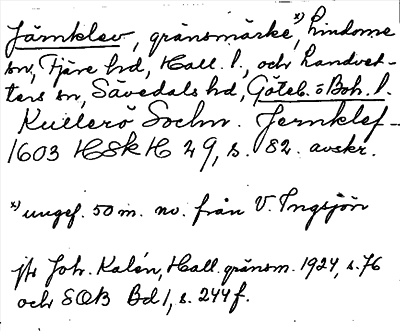 Järnklev, gränsmärke x), Lindome
sn, Fjäre hd, Hall. l., och Landvet-
ters sn, Sävedals hd, Göteb. o Boh. l.
Kullerö Sochn. Jernklef
1603 HSkH 29, s. 82. avskr.
x) ungef. 50 m. nv. från V. Ingsjön
jfr Joh. Kalén, Hall. gränsm. 1924, s. 76
och SOB Bd 1, s. 244 f.